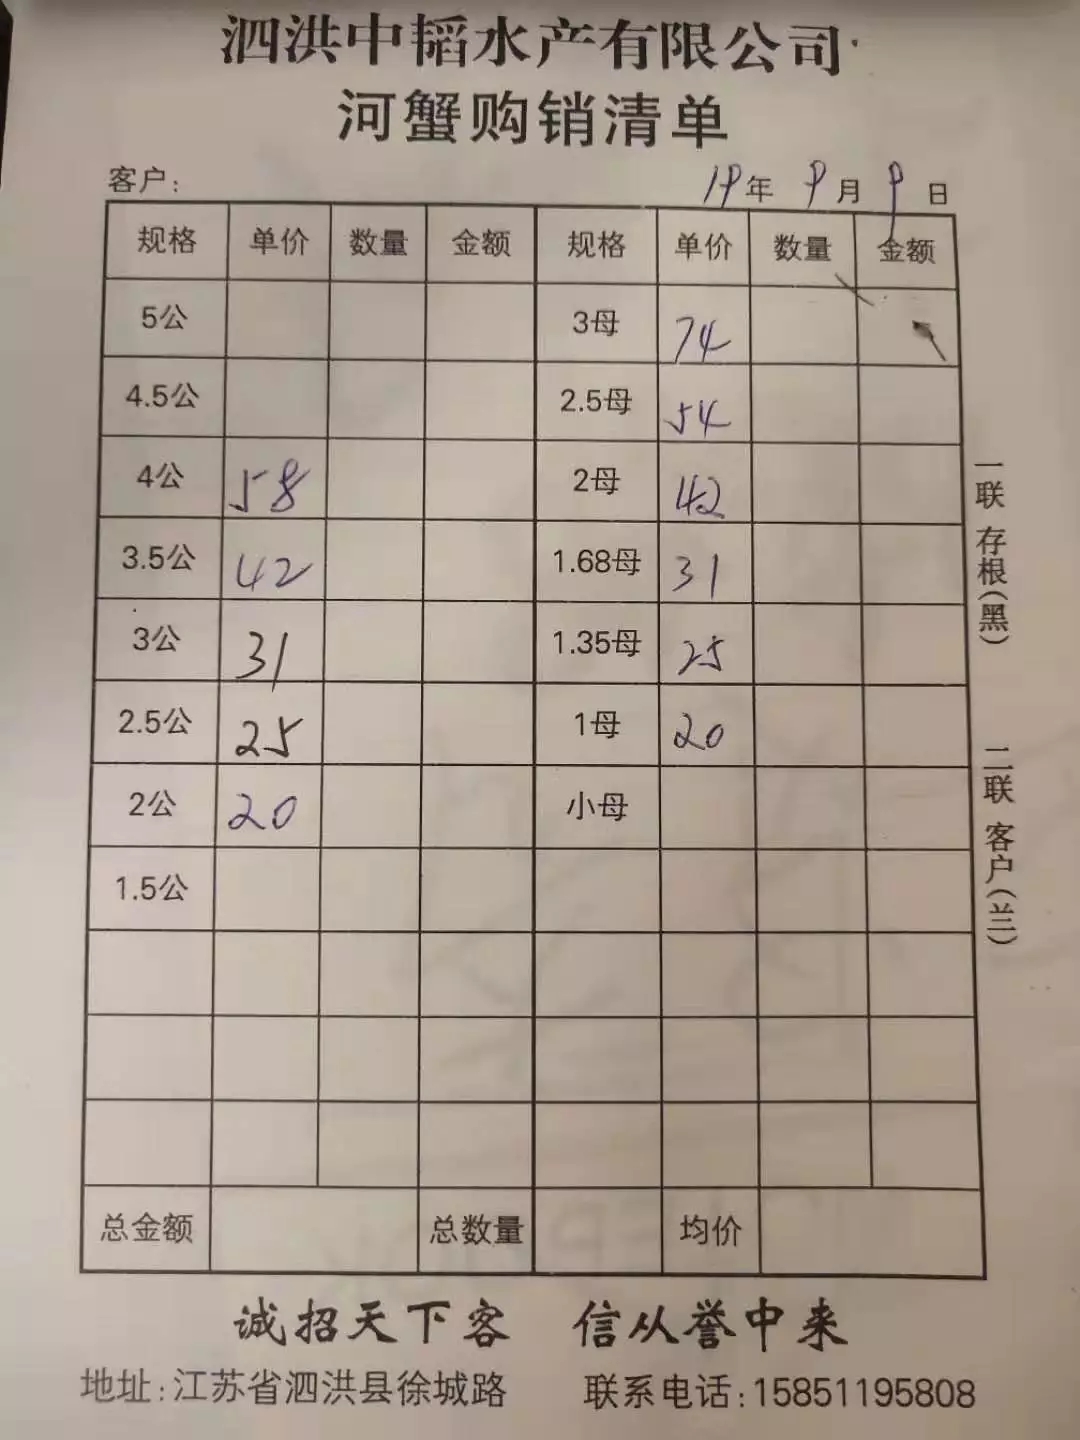 泗洪中韬水产有限公司
河蟹购销清单
客户: 19年 9月 9日
规格 单价 数量 金额 规格 单价 数量 金额
5公 3母 74
4.5公 2.5母 54
4公 58 2母 42
3.5公 42 1.68母 31
3公 31 1.35母 25
2.5公 25 1母 20
2公 20 小母
1.5公
总金额 总数量 均价
一联 存根(黑)
二联 客户(兰)
诚招天下客 信从誉中来
地址:江苏省泗洪县徐城路 联系电话:15851195808